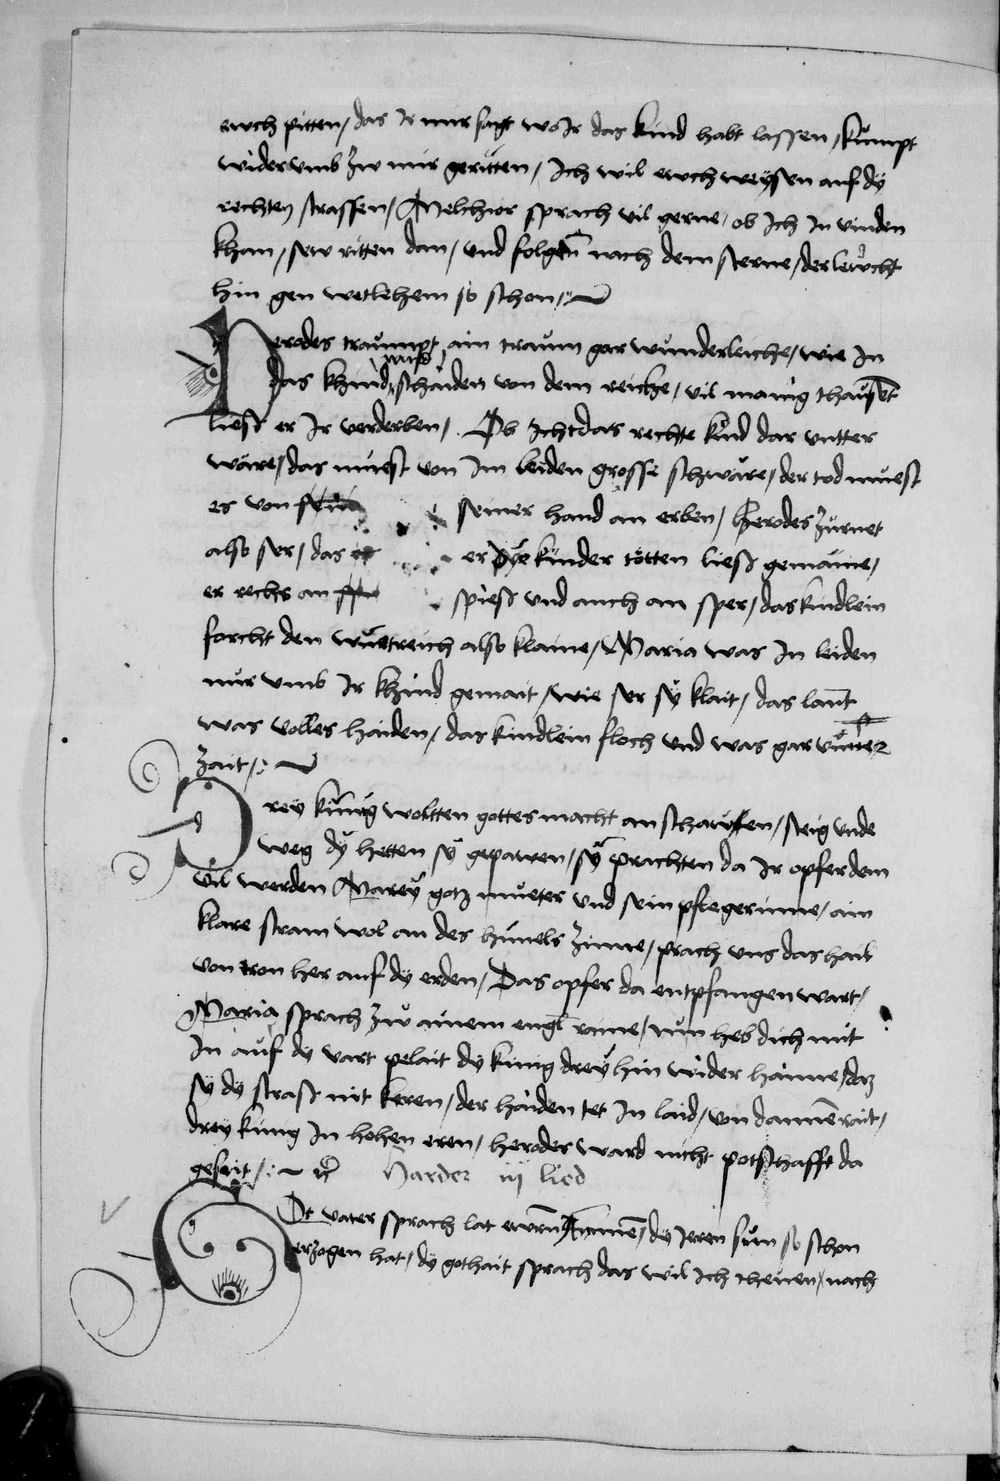 ewch pitten / das Ir mir sagt wo Ir das kind habt lassen / kumpt
widervmb zw mir geritten / Ich wil ewch weÿsen auf dÿ
rechten strassen / Melchior sprach vil gerne / ob Ich In vinden
khan / sew ritten dan / vnd folgtn̄ nach dem sterne / der lewcht
hin gen wetlehem so schon /:~
Herodes traumpt ain traum gar wunderleiche / wie In
das khind must schaiden von dem reiche / vil manig thausēt
liesß er Ir verderben / Ob Icht das rechte kind dar vntter
wäre / das muest von Im leiden grosse schwäre / der tod muest
es von seiner hand an erben / Herodes zurnet
also ser / das er dye kinder tötten liesß gemaine /
er rechs an spiesß vnd auch an sper / das kindlein
forcht den wüetreich also klaine / Maria was In leiden
nur vmb Ir khind gemait / wie ser sÿ klait / das lannt
was volles haiden / das kindlein floch vnd was gar vntter
zait /:~
Drey kunig woltten gottes macht an schawen / steig vnde
weg dÿ hetten sÿ gepawen / sÿ prachten da Ir opfer dem
vil werden Mareÿ gotz mueter vnd sein pflegerinne / ain
klare stram wol an des himels zinne / prach vns das hail
von tron her auf dÿ erden / Das opfer da entpfangen wart /
Maria sprach zw ainem engl raine / nun heb dich mit
In auf dÿ vart pelait dÿ kunig dreÿ hin wider haime / daz
sÿ dÿ strasß nit keren / der haiden tet In laid / von dannē rait /
dreÿ kung In hohen eren / herodes ward nicht potschafft da
gesait /:~ Harder iij lied
Got vater sprach lat ewrn̄ / dÿ Iren sun so schon
erzogen hat / dÿ gothait sprach das wil ich / nach